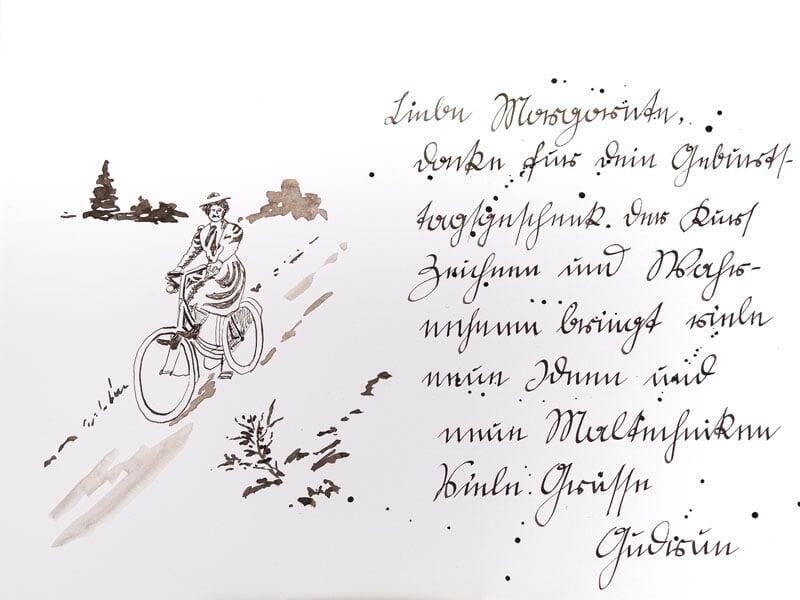 Liebe Margarete,
danke für dein Geburts-
tagsgeschenk. Der Kurs
Zeichnen und Wahr-
nehmen bringt viele
neue Ideen und
neue Maltechniken
Viele Grüsse
Gudrun